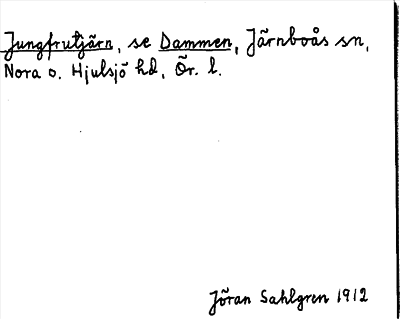 Jungfrutjärn, se Dammen, Järnboås sn,
Nora o. Hjulsjö hd, Ör. l.
Jöran Sahlgren 1912